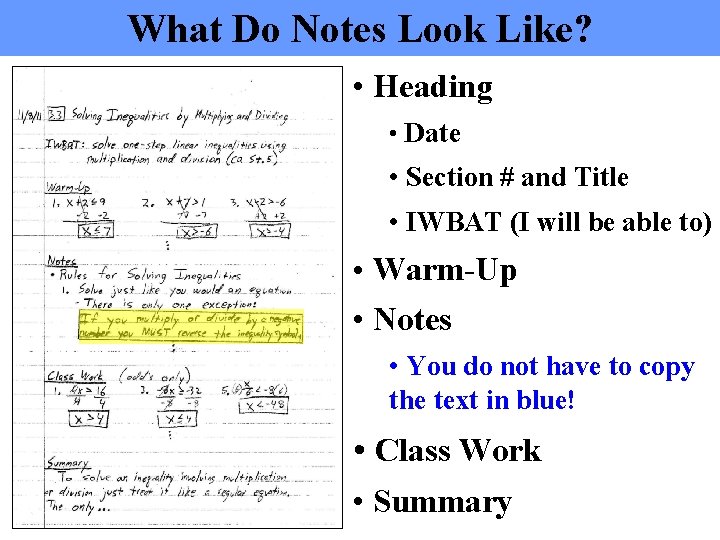 What Do Notes Look Like?
11/8/11 3.3 Solving Inequalities by Multiplying and Dividing
IWBAT: solve one-step linear inequalities using
multiplication and division (CA St. 5)
Warm-Up
1. x+2≤9 2. x+7>1 3. x-2>-6
-2 -2 -7 -7 +2 +2
x≤7 x>-6 x>-4
Notes
• Rules for Solving Inequalities
1. Solve just like you would an equation
- There is only one exception:
If you multiply or divide by a negative
number you MUST reverse the inequality symbol.
Class Work (odd's only)
1. 4x>16 3. -8x≥-32 5.
4 4 -8 -8 x<-48
x>4 x≤4
Summary
To solve an inequality involving multiplication
or division just treat it like a regular equation.
The only...
• Heading
• Date
• Section # and Title
• IWBAT (I will be able to)
• Warm-Up
• Notes
• You do not have to copy
the text in blue!
• Class Work
• Summary